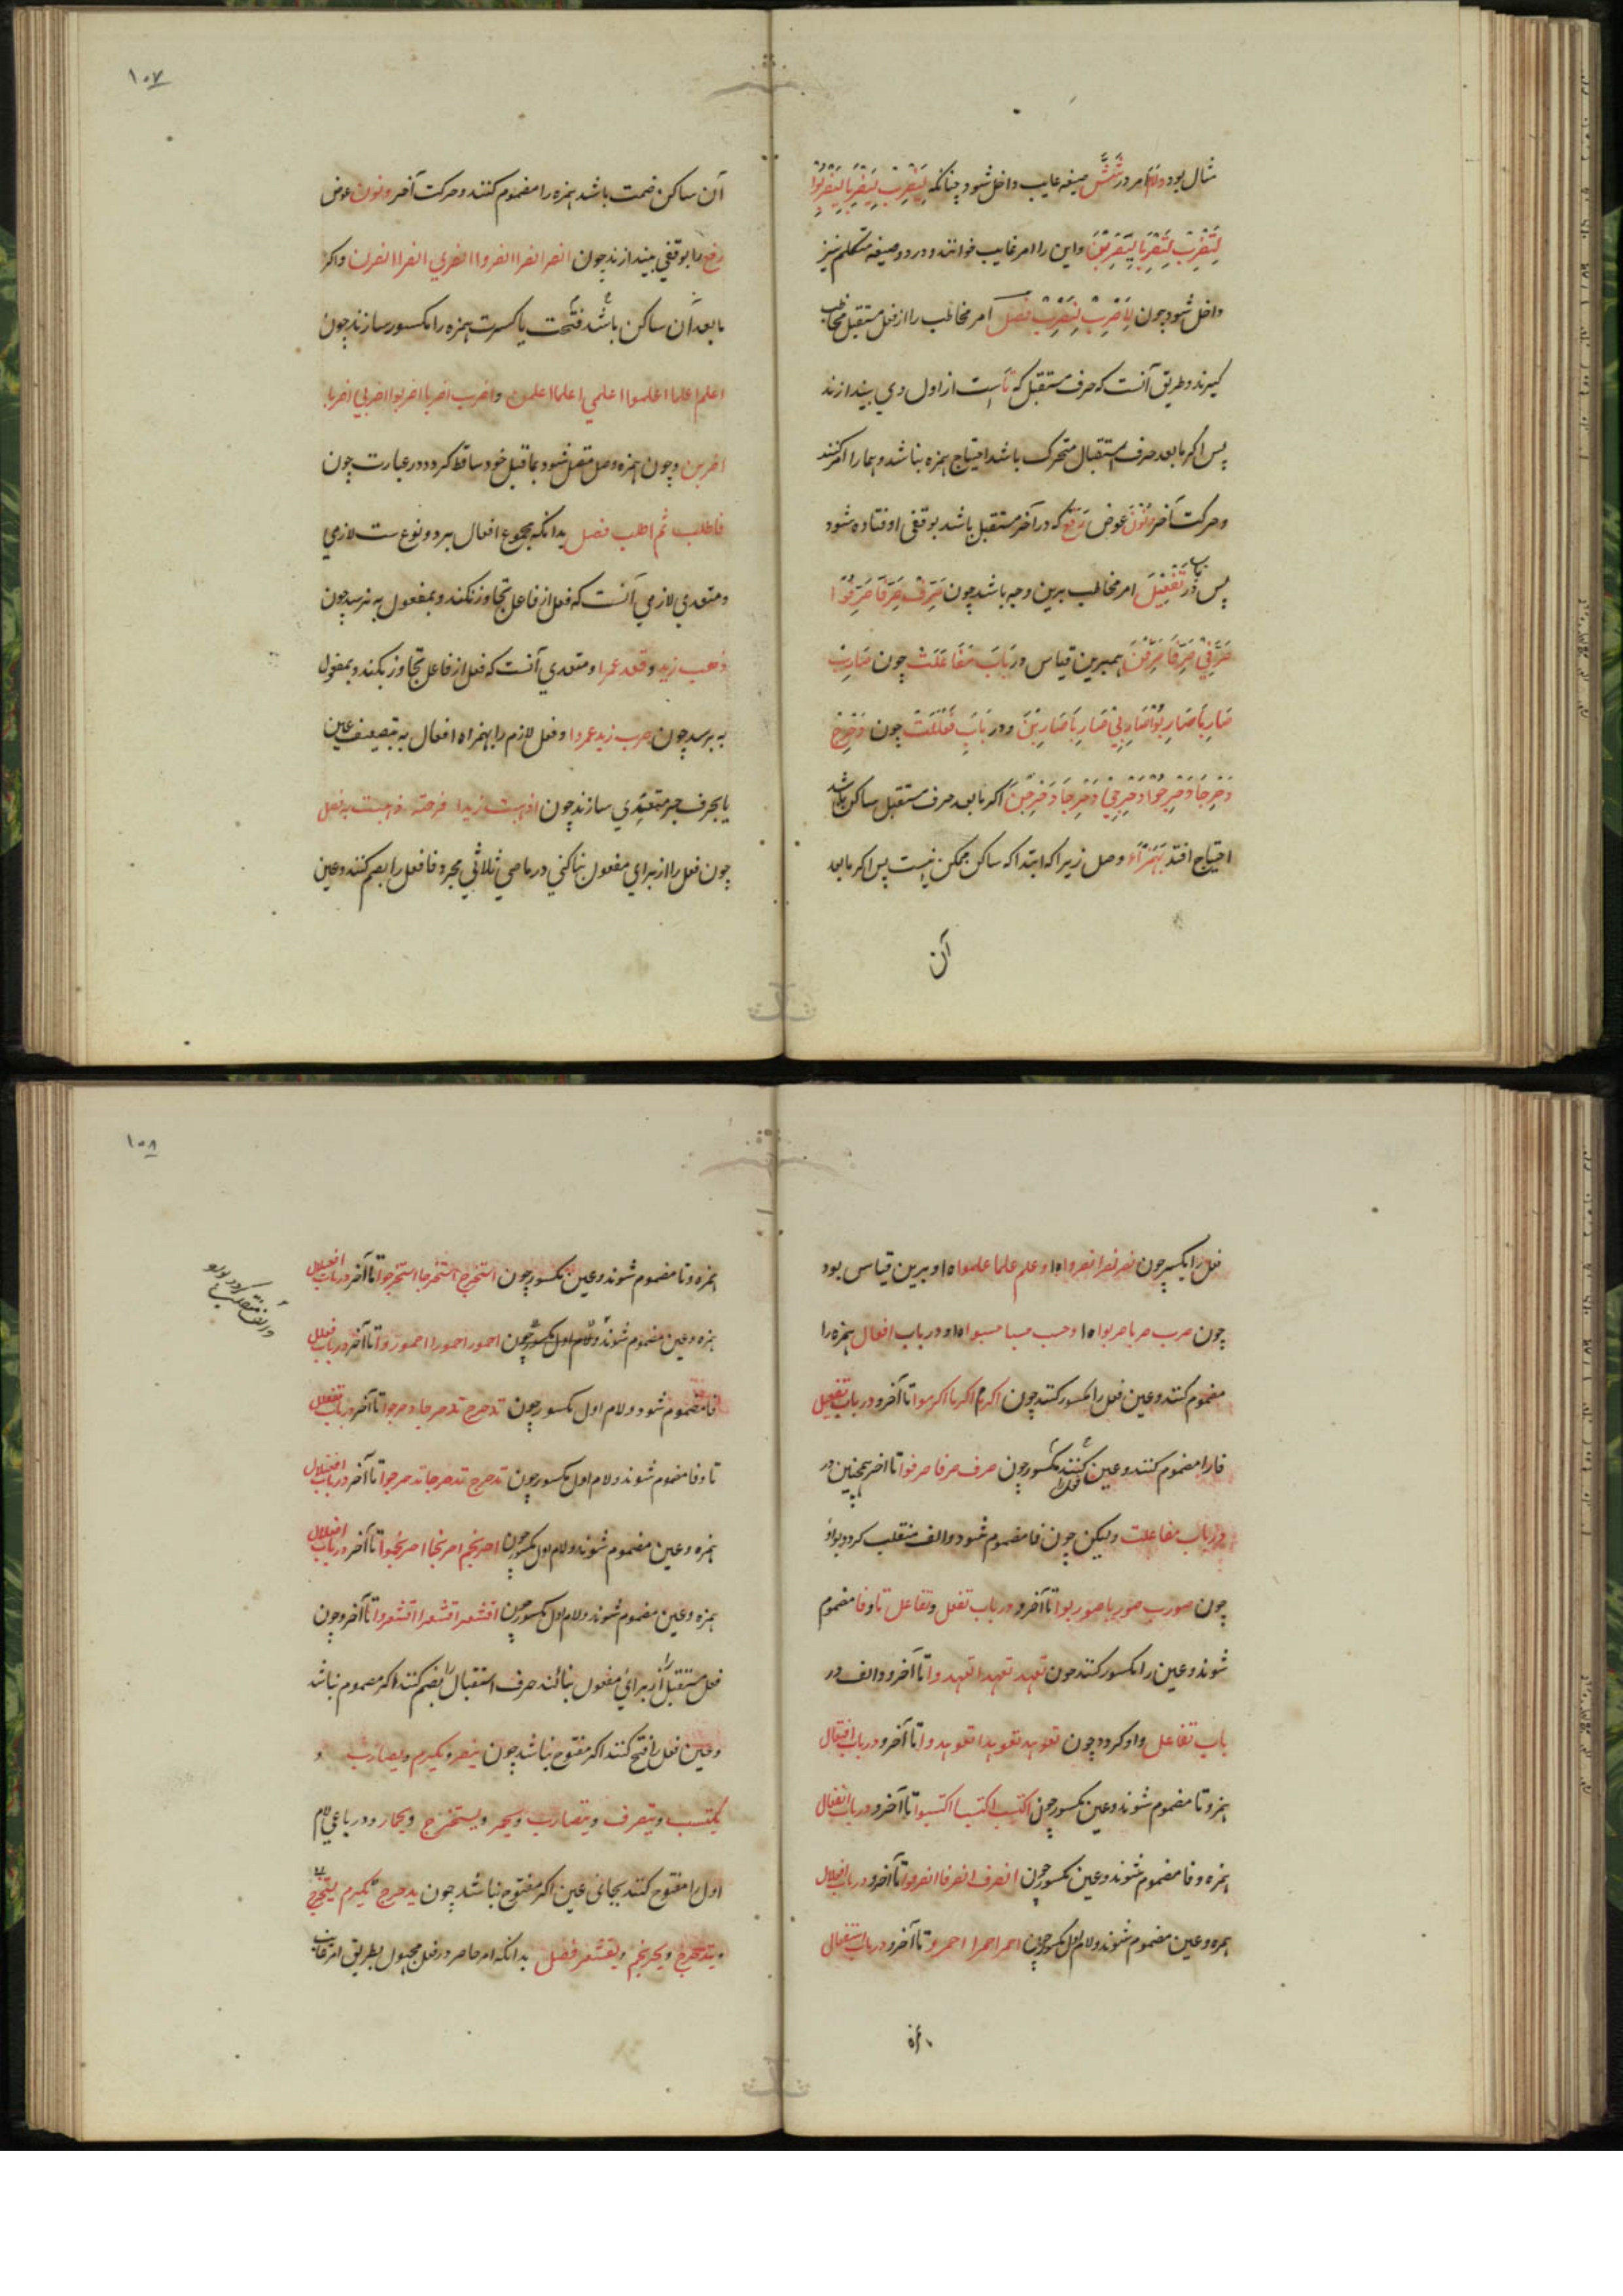 مثال بود ولام امر در شش صیغه غایب داخل شود چنانکه لِیَضْرِبْ لِیَضْرِبَا لِیَضْرِبُوْا
لِتَضْرِبْ لِتَضْرِبَا لِیَضْرِبْنَ واین را امر غایب خوانند و در دو صیغه متکلم نیز
داخل شود چون لِاَضْرِبْ لِنَضْرِبْ فصل امر مخاطب را از فعل مستقبل مخاطب
گیرند و طریق آنست که حرف مستقبل که تاست از اول وی بیندازند
پس اکر ما بعد حرف استقبال متحرک باشد احتیاج بهمزه نباشد وهمانرا امر کنند
وحرکت آخر ونون عوض رفع که در آخر مستقبل باشد بوقفی افتاده شود
پس در باب تفعیل امر مخاطب برین وجه باشد چون صَرِّفْ صَرِّفَا صَرِّفُوْا
صَرِّفِیْ صَرِّفَا صَرِّفْنَ همبرین قیاس در باب مفاعلت چون ضَارِبْ
ضَارِبَا ضَارِبُوْا ضَارِبِیْ ضَارِبَا ضَارِبْنَ ودر باب فعللت چون دَحْرِجْ
دَحْرِجَا دَحْرِجُوْا دَحْرِجِیْ دَحْرِجَا دَحْرِجْنَ اکر ما بعد حرف مستقبل ساکن باشد
احتیاج افتد بهمزهٔ وصل زیرا که ابتدا که ساکن ممکن نیست پس اکر ما بعد
آن
١٠٧
آن ساکن ضمت باشد همزه را مضموم کنند وحرکت آخر ونون عوض
رفع را بوقفی بیندازند چون انصر انصرا انصروا انصری انصرا انصرن واکر
ما بعد آن ساکن باشد فتحت یا کسرت همزه را مکسور سازند چون
اعلم اعلما اعلموا اعلمی اعلما اعلمن واضرب اضربا اضربوا اضربی اضربا
اضربن وچون همزه وصل متصل شود بما قبل خود ساقط کردد در عبارت چون
فاطلب ثم اطلب فصل بدانکه مجموع افعال بر دو نوع ست لازمی
ومتعدی لازمی آنست که فعل از فاعل تجاوز نکند وبمفعول به نرسد چون
ذهب زید وقعد عمرا ومتعدی آنست که فعل از فاعل تجاوز بکند وبمفعول
به برسد چون ضرب زید عمروا وفعل لازم را بهمزاه افعال به تضعیف عین
یا بحرف جر متعدی سازند چون اذهبت زیدا فرحته ذهبت به فصل
چون فعل را از برای مفعول بنا کنی در ماضی ثلاثی مجرد فا فعل را بضم کنند وعین
فعل را بکسر چون نصر نصرا نصروا ه او علم علما علموا ه او برین قیاس بود
چون ضرب ضربا ضربوا ه ا وحسب حسبا حسبوا ه او ودر باب افعال همزه را
مضموم کنند وعین فعل را مکسور کنند چون اکرم اکرما اکرموا تا آخر ودر باب تفعیل
فا را مضموم کنند وعین کنند مکسور چون صرف صرفا صرفوا تا اخر همچنین در
در باب مفاعلت ولیکن چون فا مضموم شود والف منقلب کردد بواو
چون ضورب ضوربا ضوربوا تا آخر ودر باب تفعل وتفاعل تا وفا مضموم
شوند وعین را مکسور کنند چون تعهد تعهدا تعهدوا تا آخر ودالف در
باب تفاعل واو کردد چون تعوهد تعوهدا تعوهدوا تا آخر ودر باب افتعال
همزه وتا مضموم شوند وعین مکسور چون اکتسب اکتسبا اکتسبوا تا آخر ودر باب انفعال
همزه وفا مضموم شوند وعین مکسور چون انصرف انصرفا انصرفوا تا آخر ودر باب افعلال
همزه وعین مضموم شوند ولام اول مکسور چون احمر احمرا احمروا تا آخر ودر باب استفعال
همزه
١٠٨
همزه وتا مضموم شوند وعین مکسور چون استخرج استخرجا استخرجوا تا آخر در باب افعیلال
همزه وعین مضموم شوند ولام اول مکسور چون احمور احمورا احموروا تا آخر در باب فعلل
فا مضموم شود ولام اول مکسور چون تدحرج تدحرجا دحرجوا تا آخر در باب تفعلل
تا وفا مضموم شوند ولام اول مکسور چون تدحرج تدحرجا تدحرجوا تا آخر در باب افعنلال
همزه وعین مضموم شوند ولام اول مکسور چون احرنجم احرنجما احرنجموا تا آخر در باب افعلال
همزه وعین مضموم شوند ولام اول مکسور چون اقشعر اقشعرا اقشعروا تا آخر وچون
فعل مستقبل را از برای مفعول بنا کنند حرف استقبال را بضم کنند اکر مضموم نباشد
وعین فعل را فتح کنند اکر مفتوح نباشد چون ینصر ویکرم ویضارب و
یکتسب ویتصرف ویتضارب ویحمر ویستخرج ویحمار ودر رباعی لام
اول را مفتوح کنند بجای عین اکر مفتوح نباشد چون یدحرج
ویتدحرج ویحرنجم ویقشعر فصل بدانکه امر حاضر در فعل مجهول بطریق امر غایب